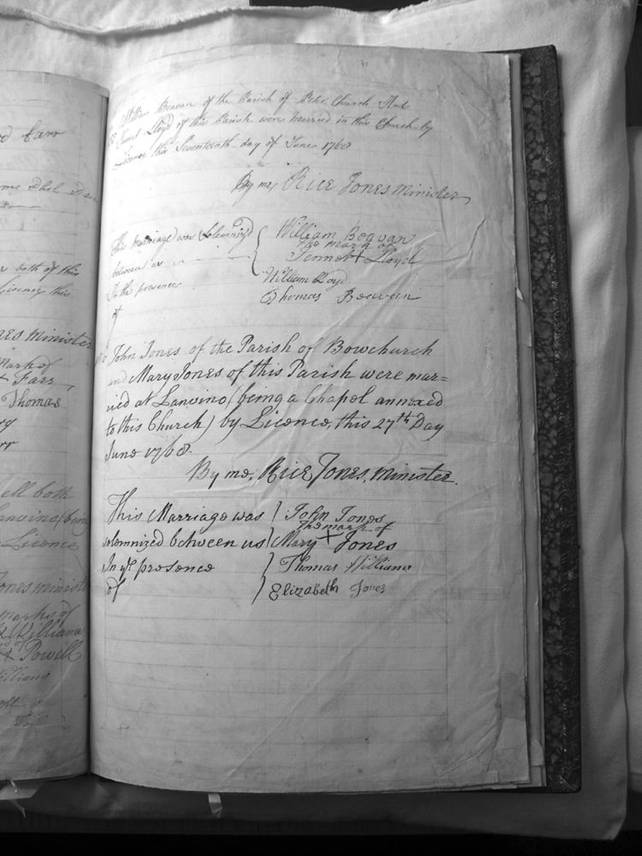 d Carr
both of this
Licence this
Jones Minister
Mark of
+ Farr
Thomas
ell both
Lanvino (being
Licence
Jones minister
marks of
Williams
+ Powell
Beavan of the Parish of Peter Church
Lloyd of this Parish were married in this Church by
Licence this Seventeenth day of June 1768
By me, Rice Jones Minister
This marriage was Solemnized
between us
In the presence
of
William Beavan
The mark of
Jennet + Lloyd
William Lloyd
Thomas Beavan
John Jones of the Parish of Bowchurch
and Mary Jones of this Parish were mar=
ried at Lanvino (being a Chapel annexed
to this Church) by Licence, this 27th Day
June 1768.
By me, Rice Jones, Minister.
This Marriage was
solemnized between us
In ye presence
of
John Jones
The mark of
Mary + Jones
Thomas Williams
Elizabeth Jones